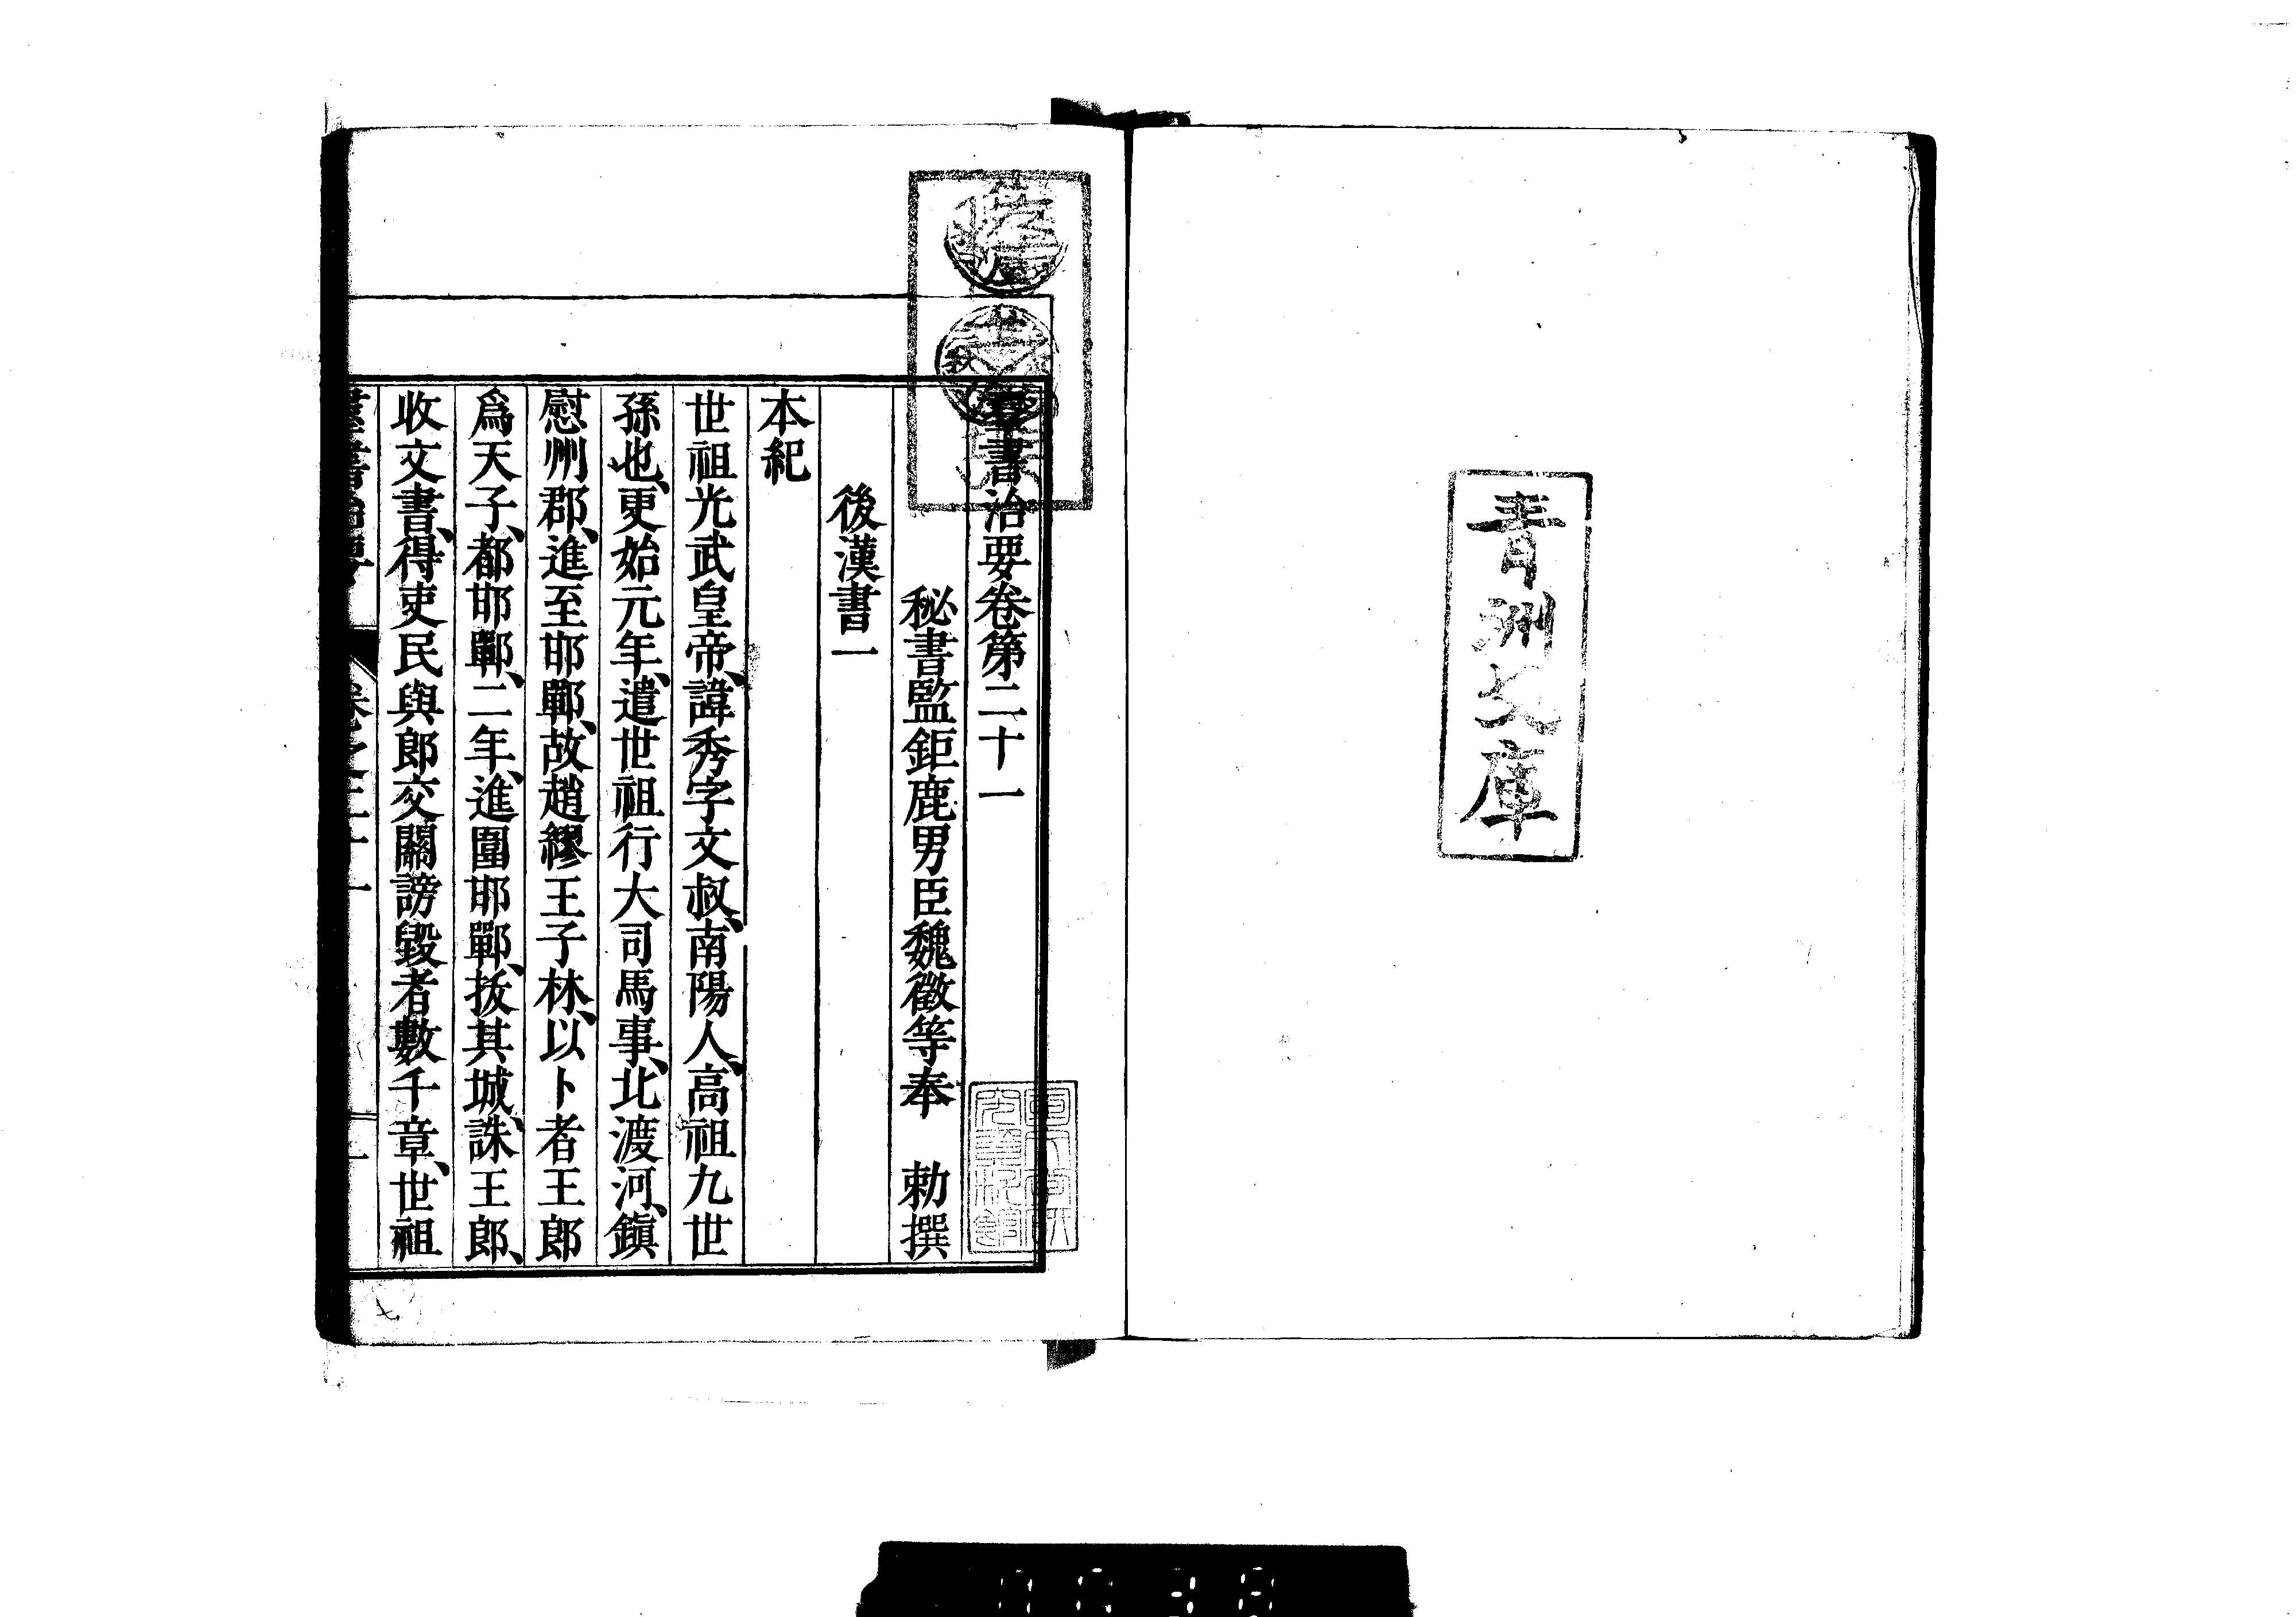 青洲文庫
羣書治要卷第二十一
秘書監鉅鹿男臣魏徵等奉　勅撰
後漢書一
本紀
世祖光武皇帝、諱秀字文叔、南陽人、高祖九世
孫也、更始元年、遣世祖行大司馬事、北渡河、鎭
慰州郡、進至邯鄲、故趙繆王子林、以卜者王郎
爲天子、都邯鄲、二年、進圍邯鄲、拔其城、誅王郎、
收文書、得吏民與郎交關謗毀者數千章、世祖